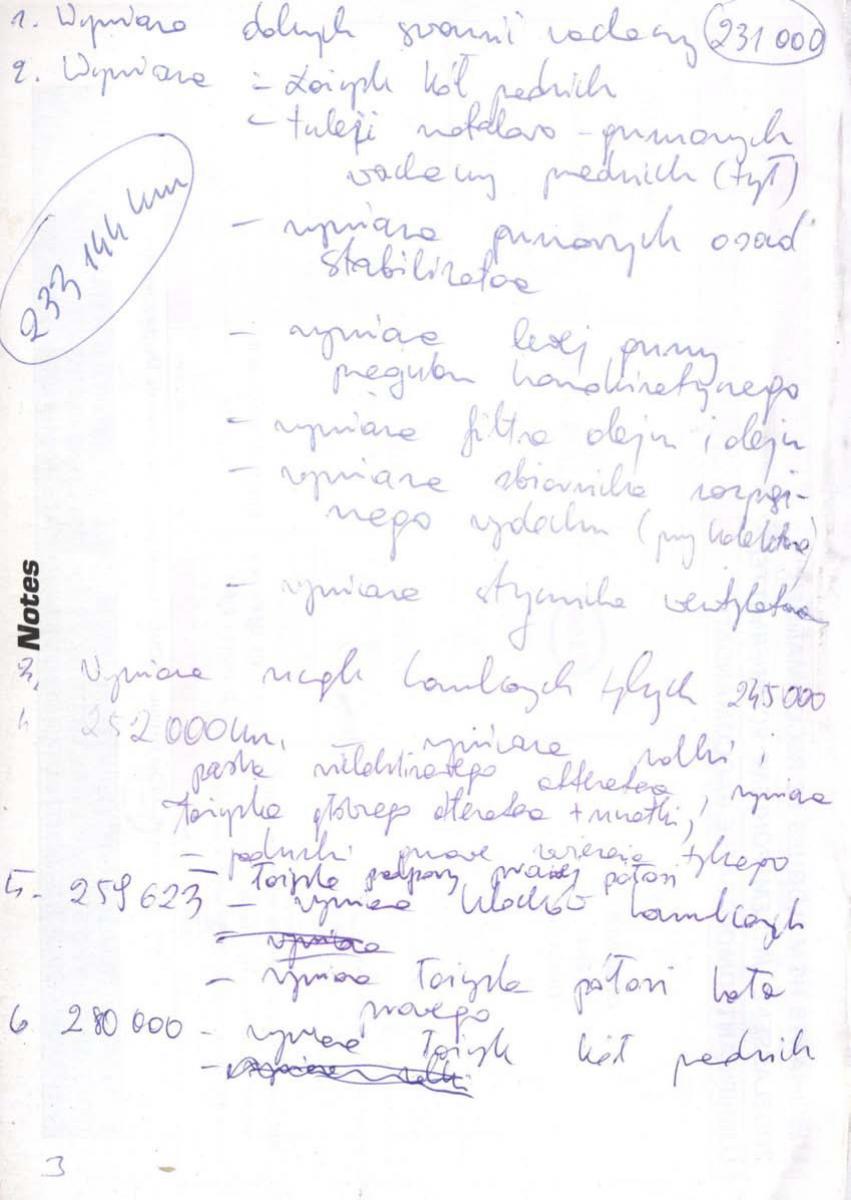 1. Wymiana dolnych sworzni wahaczy 231 000
2. Wymiana - łożysk kół przednich
- tuleji metalowo-gumowych
wahaczy przednich (tył)
233 144 km
- wymiana gumowych osad
stabilizatora
- wymiana lewej gumy
przegubu homokinetycznego
- wymiana filtra oleju i oleju
- wymiana zbiornika rozprę-
żnego wydechu (przy kolektorze)
- wymiana stycznika wentylatora
Notes
3. Wymiana szczęk hamulcowych tylnych 245 000
4. 252 000 km, wymiana rolki i
paska wieloklinowego alternatora, wymiana
łożyska głównego alternatora + szczotki,
- poduszki tylnego
- łożyska podpory prawej półosi
5. 259 623 - wymiana klocków hamulcowych
- wymiana
- wymiana łożyska półosi koła
prawego
6 280 000 - wymiana łożysk kół przednich
3